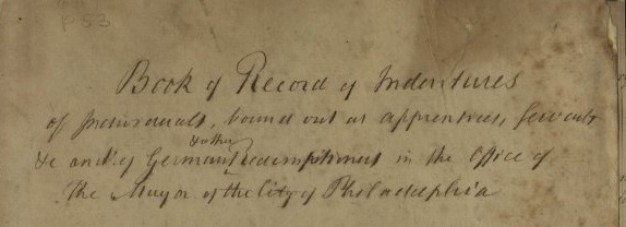 P53
Book of Record of Indentures
of Individuals, bound out as apprentices, servants
& other
&c and of German Redemptioners in the Office of
the Mayor of the City of Philadelphia